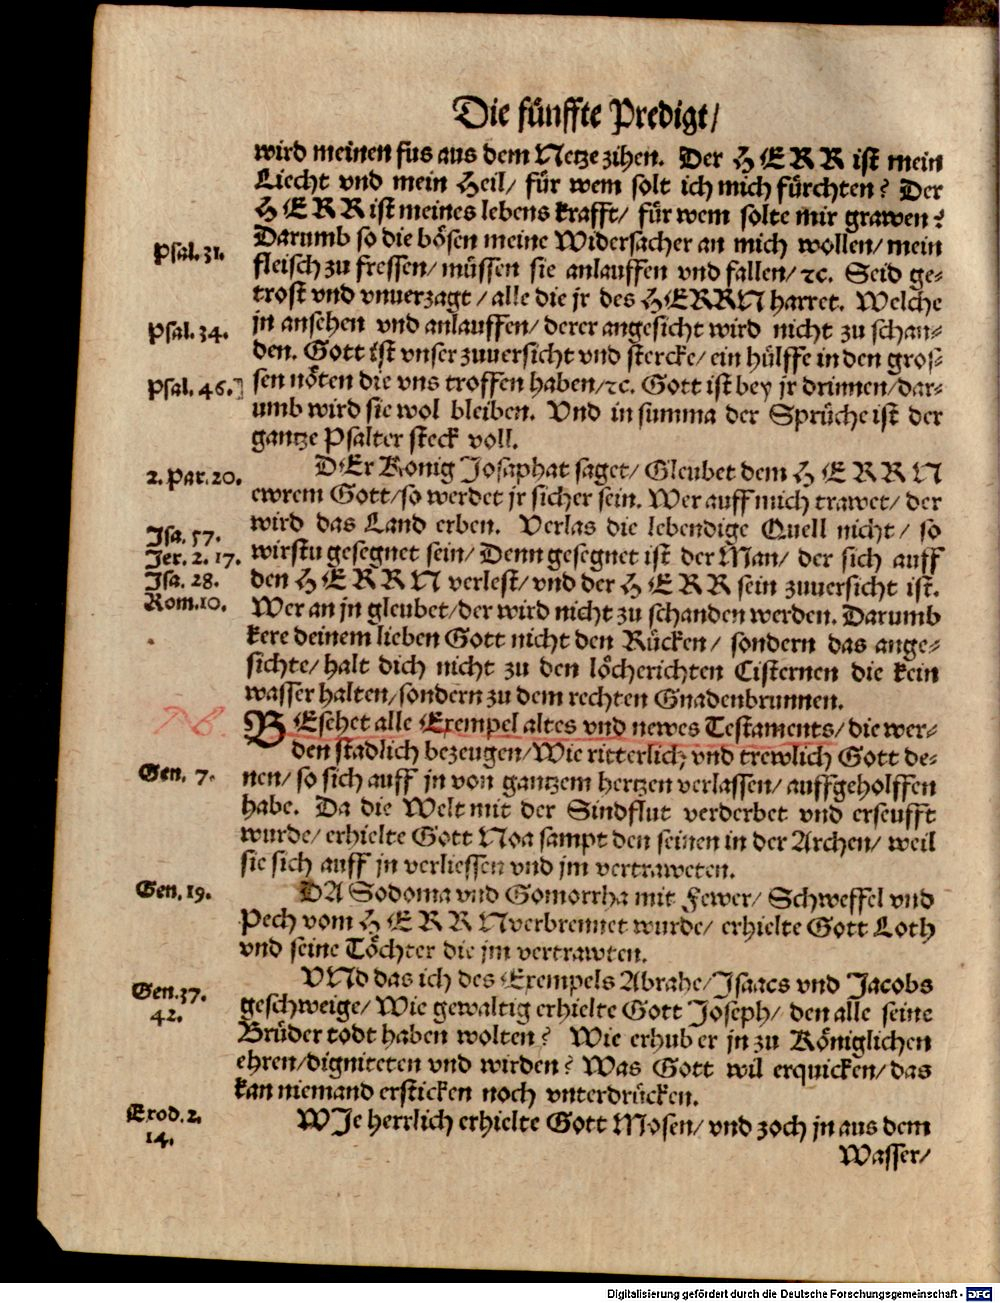 Die fünffte Predigt/
wird meinen fus aus dem Netze zihen. Der HERR ist mein
Liecht vnd mein Heil/ für wem solt ich mich fürchten? Der
HERR ist meines lebens krafft/ für wem solte mir grawen?
Darumb so die bösen meine Widersacher an mich wollen/ mein
Psal. 31.
fleisch zu fressen/ müssen sie anlauffen vnd fallen/ ꝛc. Seid ge-
trost vnd vnuerzagt / alle die jr des HERRN harret. Welche
jn ansehen vnd anlauffen/ derer angesicht wird nicht zu schan-
Psal. 34.
den. Gott ist vnser zuuersicht vnd stercke/ ein hülffe in den gros-
sen nöten die vns troffen haben/ ꝛc. Gott ist bey jr drinnen/ dar-
Psal. 46.]
umb wird sie wol bleiben. Vnd in summa der Sprüche ist der
gantze Psalter steck voll.
DEr Konig Josaphat saget/ Gleubet dem HERRN
2. Par. 20.
ewrem Gott/ so werdet jr sicher sein. Wer auff mich trawet/ der
wird das Land erben. Verlas die lebendige Quell nicht / so
Isa. 57.
wirstu gesegnet sein/ Denn gesegnet ist der Man/ der sich auff
Jer. 2. 17.
den HERRN verlest/ vnd der HERR sein zuuersicht ist.
Isa. 28.
Wer an jn gleubet/ der wird nicht zu schanden werden. Darumb
Rom. 10.
kere deinem lieben Gott nicht den Rücken/ sondern das ange-
sichte/ halt dich nicht zu den löcherichten Cisternen die kein
wasser halten/ sondern zu dem rechten Gnadenbrunnen.
NB.
BEsehet alle Exempel altes vnd newes Testaments/ die wer-
den stadlich bezeugen/ Wie ritterlich vnd trewlich Gott de-
Gen. 7.
nen/ so sich auff jn von gantzem hertzen verlassen/ auffgeholffen
habe. Da die Welt mit der Sindflut verderbet vnd erseufft
wurde/ erhielte Gott Noa sampt den seinen in der Archen/ weil
sie sich auff jn verliessen vnd jm vertraweten.
Gen. 19.
DA Sodoma vnd Gomorrha mit Fewer/ Schweffel vnd
Pech vom HERRN verbrennet wurde/ erhielte Gott Loth
vnd seine Töchter die jm vertrawten.
VNd das ich des Exempels Abrahe/ Isaacs vnd Jacobs
Gen. 37.
42.
geschweige/ Wie gewaltig erhielte Gott Joseph/ den alle seine
Brüder todt haben wolten? Wie erhub er jn zu Königlichen
ehren/ digniteten vnd wirden? Was Gott wil erquicken/ das
kan niemand ersticken noch vnterdrücken.
Exod. 2.
14.
WJe herrlich erhielte Gott Mosen/ vnd zoch jn aus dem
Wasser/
Digitalisierung gefördert durch die Deutsche Forschungsgemeinschaft - DFG